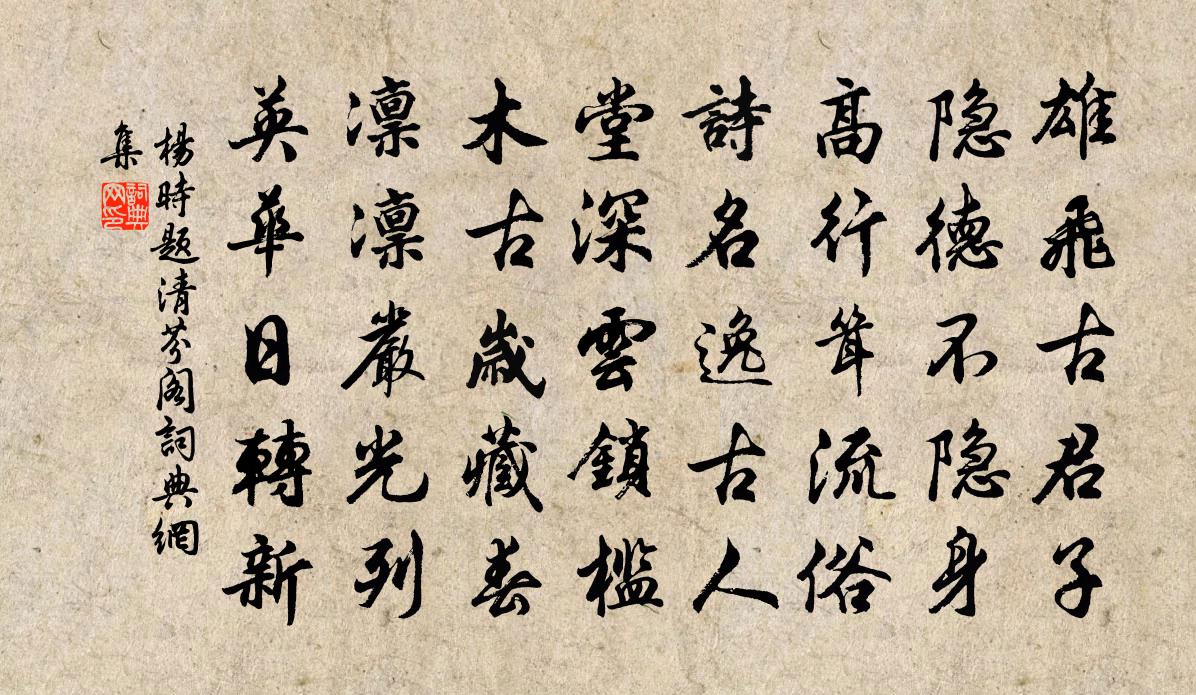 雄飛古君子
隐德不隐身
高行聳流俗
詩名逸古人
堂深雲鎖檻
木古歲藏春
凛凛嚴光列
英華日轉新
楊時題清芬阁詞典網
集
詞典
网印